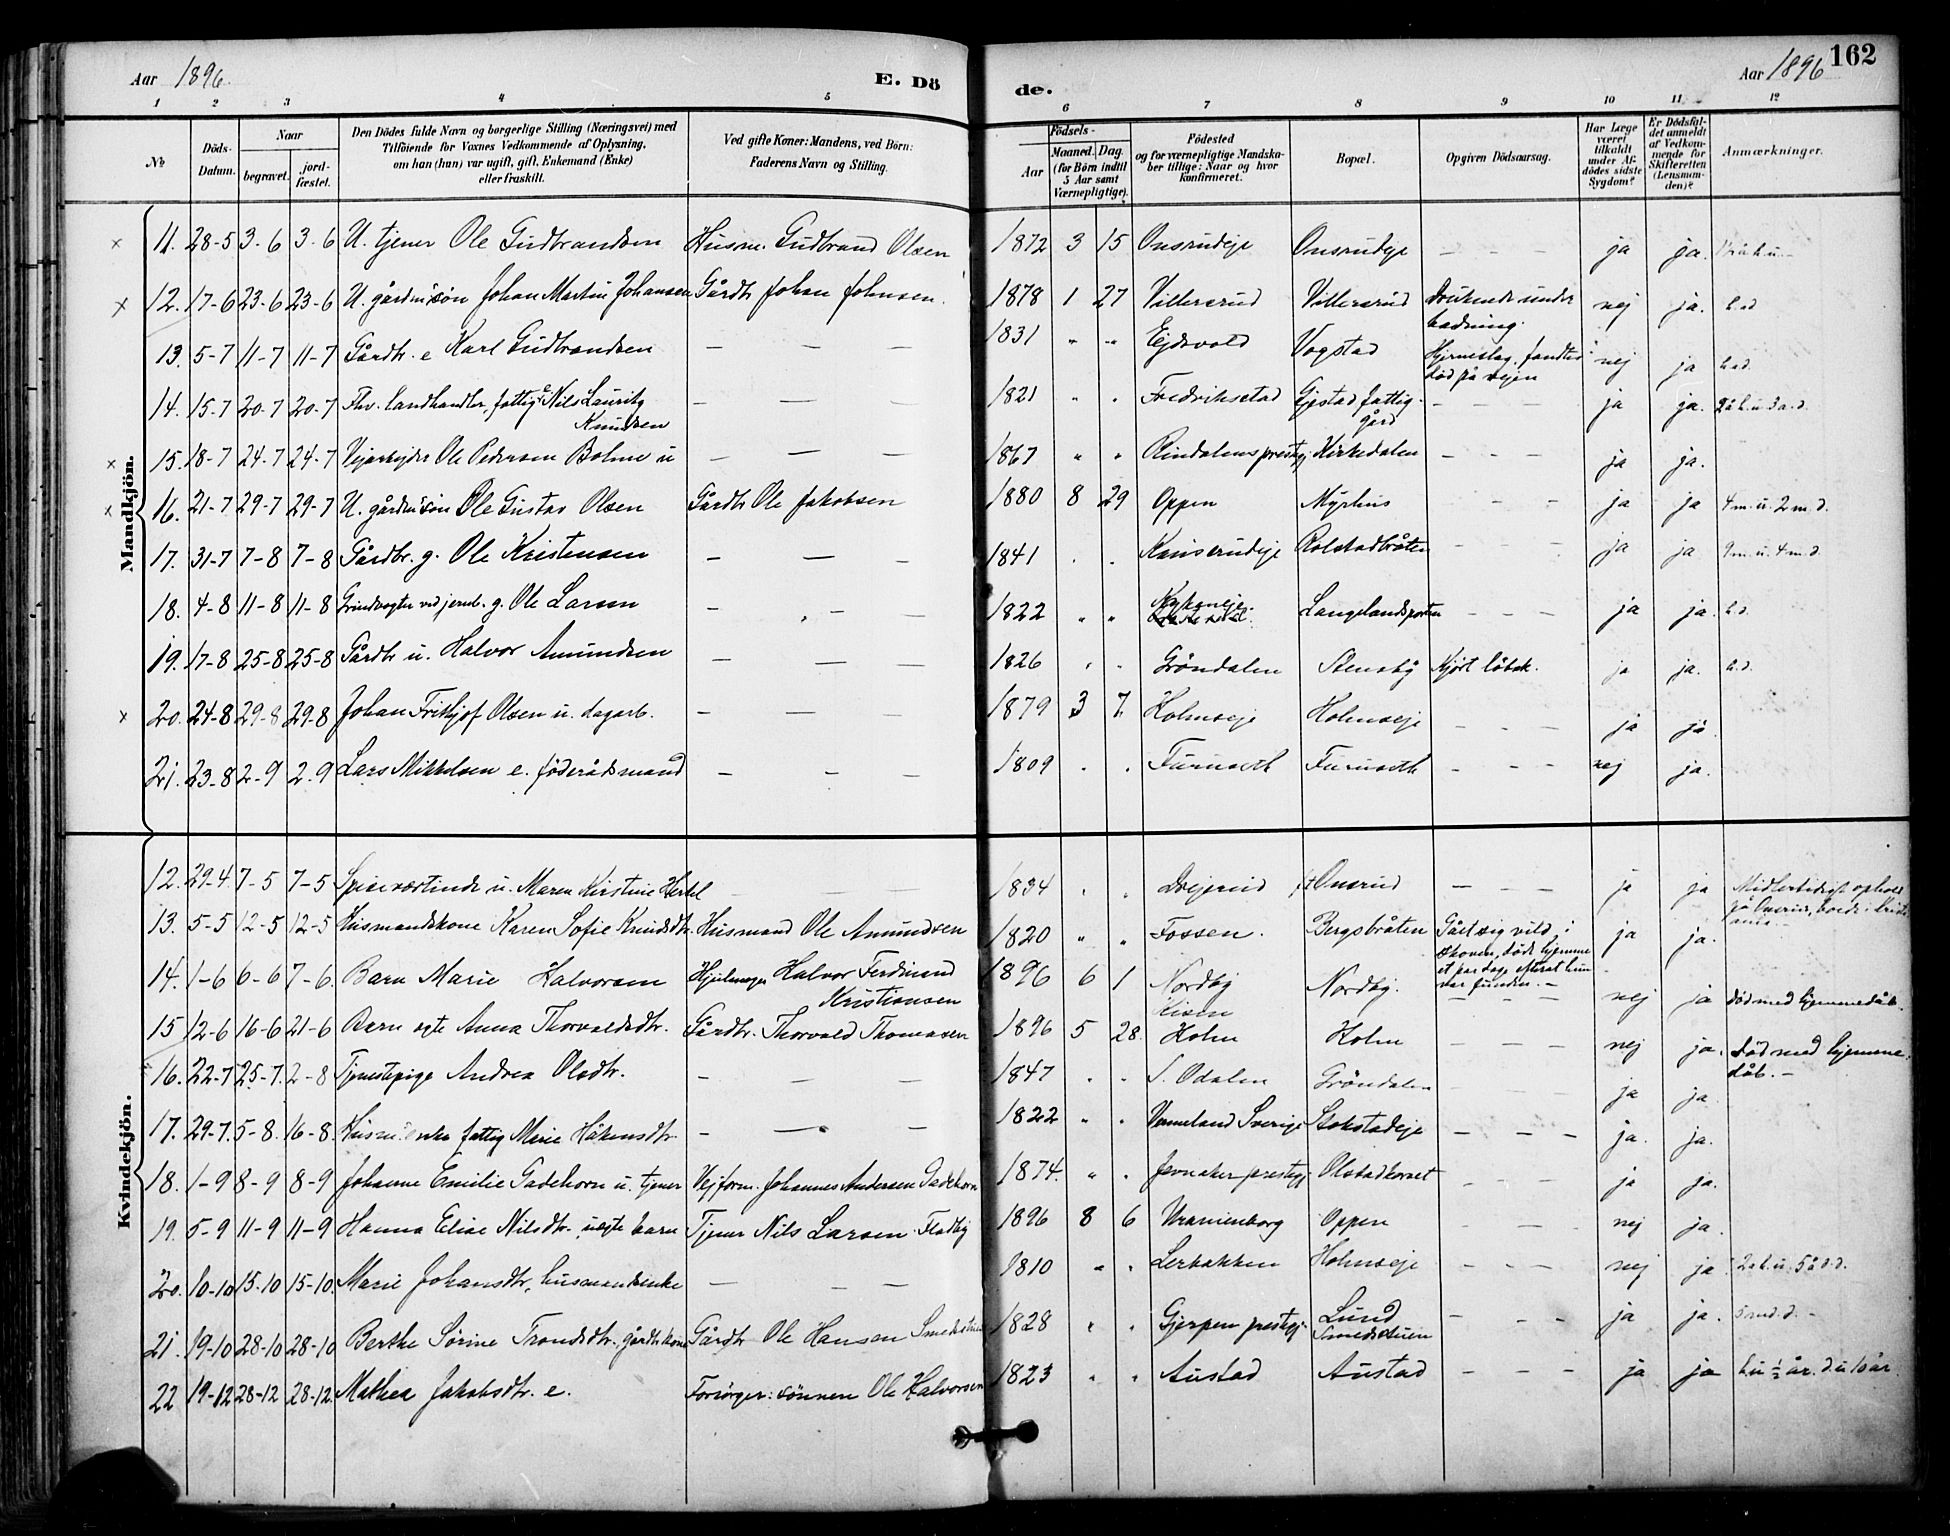 Aar 1896.
E. Dö
de.
Aar 1896
162
1 2 3 4 5 6 7 8 9 10 11 12
No
Döds-Datum.
Naar
begravet.
jordfæstet.
Den Dödes fulde Navn og borgerlige Stilling (Næringsvei) med
Tilföiende for Voxnes Vedkommende af Oplysning,
om han (hun) var ugift, gift, Enkemand (Enke)
eller fraskilt.
Ved gifte Koner: Mandens, ved Börn:
Faderens Navn og Stilling.
Födsels-
Aar
Maaned. Dag.
(for Börn indtil
5 Aar samt
Værnepligtige).
Födested
og for værnepligtige Mandskaber tillige: Naar og hvor
konfirmeret.
Bopæl.
Opgiven Dödsaarsag.
Har Læge
været
tilkaldt
under Afdödes sidste
Sygdom?
Er Dödsfaldet anmeldt
af Vedkommende for
Skifteretten
(Lensmanden)?
Anmærkninger.
Mandkjön.
11. 28-5 3-6 3-6 U. tjener Ole Gudbrandsen Husm. Gudbrand Olsen 1872 3 15 Onsrudeje Onsrudeje - - - ja ja.
12. 17-6 23-6 23-6 U. gårdm. sön Johan Martin Johansen Gårdbr Johan Johnsen. 1878 1 27 Villersrud Villersrud Druknede under badning. nej ja. h.d
13. 5-7 11-7 11-7 Gårdbr. e Karl Gudbrandsen - - - 1831 " " Ejdsvold Vogstad Hjerneslag, fandtes död på vejen nej ja h.d.
14. 15-7 20-7 20-7 Fhv. landhandler, fattig, e Nils Lauritz Knudsen - - - 1821 " " Fredrikstad Gjestad fattiggård - - - ja ja.
15. 18-7 24-7 24-7 Vejarbejder Ole Pedersen Bolme u - - - 1867 " " Rindalens prestegj. Kirkedalen - - - ja ja.
16. 21-7 29-7 29-7 U. gårdm. sön Ole Gustav Olsen Gårdbr Ole Jakobsen 1880 8 29 Oppen Myrhus - - ja ja 4 m. u. 2 m. d.
17. 31-7 7-8 7-8 Gårdbr. g. Ole Kristensen - - - 1841 " " Kauserudeje Rolstadbråten - - - ja ja 9 m. u. 4 m. d.
18. 4-8 11-8 11-8 Grindvogter ved jernb. g. Ole Larsen - - - 1822 " " Langelandsporten - - - ja ja. h.d.
19. 17-8 25-8 25-8 Gårdbr u. Halvor Amundsen - - - 1826 " " Gröndalen Stensby Kjört ihjel. ja ja. h.d.
20. 24-8 29-8 29-8 Johan Fritjof Olsen u. dagarb. - - - 1879 3 7. Holmseje Holmseje - - - ja ja
21. 23-8 2-9 2-9 Lars Mikkelsen e. föderådsmand - - - 1809 " " Furuseth Furuseth - - - nej ja.
Kvindekjön.
12. 29-4 7-5 7-5 Spiseværtinde u. Maren Kirstine Hertel - - - 1834 " " Drejerud Onsrud - - - ja ja Midlertidigt ophold på Onsrud, boede i Kristiania
13. 5-5 12-5 12-5 Husmandskone Karen Sofie Knudsdtr. Husmand Ole Amundsen 1820 " " Fossen. Bergsbråten Gået sig vild i skoven, döde hjemme et par dage efterat hun var funden. - ja ja.
14. 1-6 6-6 7-6 Barn Marie Halvorsen Halvor Ferdinand Kristiansen 1896 6 1 Nordby Nordby. - - - nej ja död med hjemmedåb.
15 12-6 16-6 21-6 Barn ægte Anna Thorvaldsdtr. Gårdbr. Thorvald Thomassen 1896 5 28. Holm Holm - - - nej ja. död med hjemmedåb. -
16. 22-7 25-7. 2-8 Tjenestepige Andrea Olsdtr. - - - 1847 " " S. Odalen Gröndalen - - ja ja.
17. 29-7. 5-8. 16-8. Husm. enke fattig Marie Håkensdtr - - - 1822 " " Vermeland Sverige Stokstadeje - - - ja. ja.
18. 1-9 8-9 8-9 Johanne Emilie Gadehorn u. tjener Vejform. Johannes Andersen Gadehorn 1874. " " Jevnaker prestegj. Olstadkornet - - - ja ja.
19. 5-9 11-9 11-9 Hanna Elise Nilsdtr. uægte barn Tjener Nils Larsen Fladby 1896 8 6 Uranienborg Oppen - - - nej ja.
20. 10-10 15-10 15-10. Marie Johansdtr, husmandsenke - - 1810 " " Lerbakken Holmseje - - - nej ja
21. 19-10 28-10 28-10 Berthe Sörine Trondsdtr, gårdbr.kone Gårdbr Ole Hansen Smedstuen 1828 " " Gjerpen prestegj. Lund Smedstuen - - - ja ja. 5 m d. d. -
22 19-12 28-12 28-12. Mathea Jakobsdtr. e. Forsörger: sönnen Ole Halvorsen 1823 " " Austad Austad - - - ja ja h.u ½ år. d.u 10 år